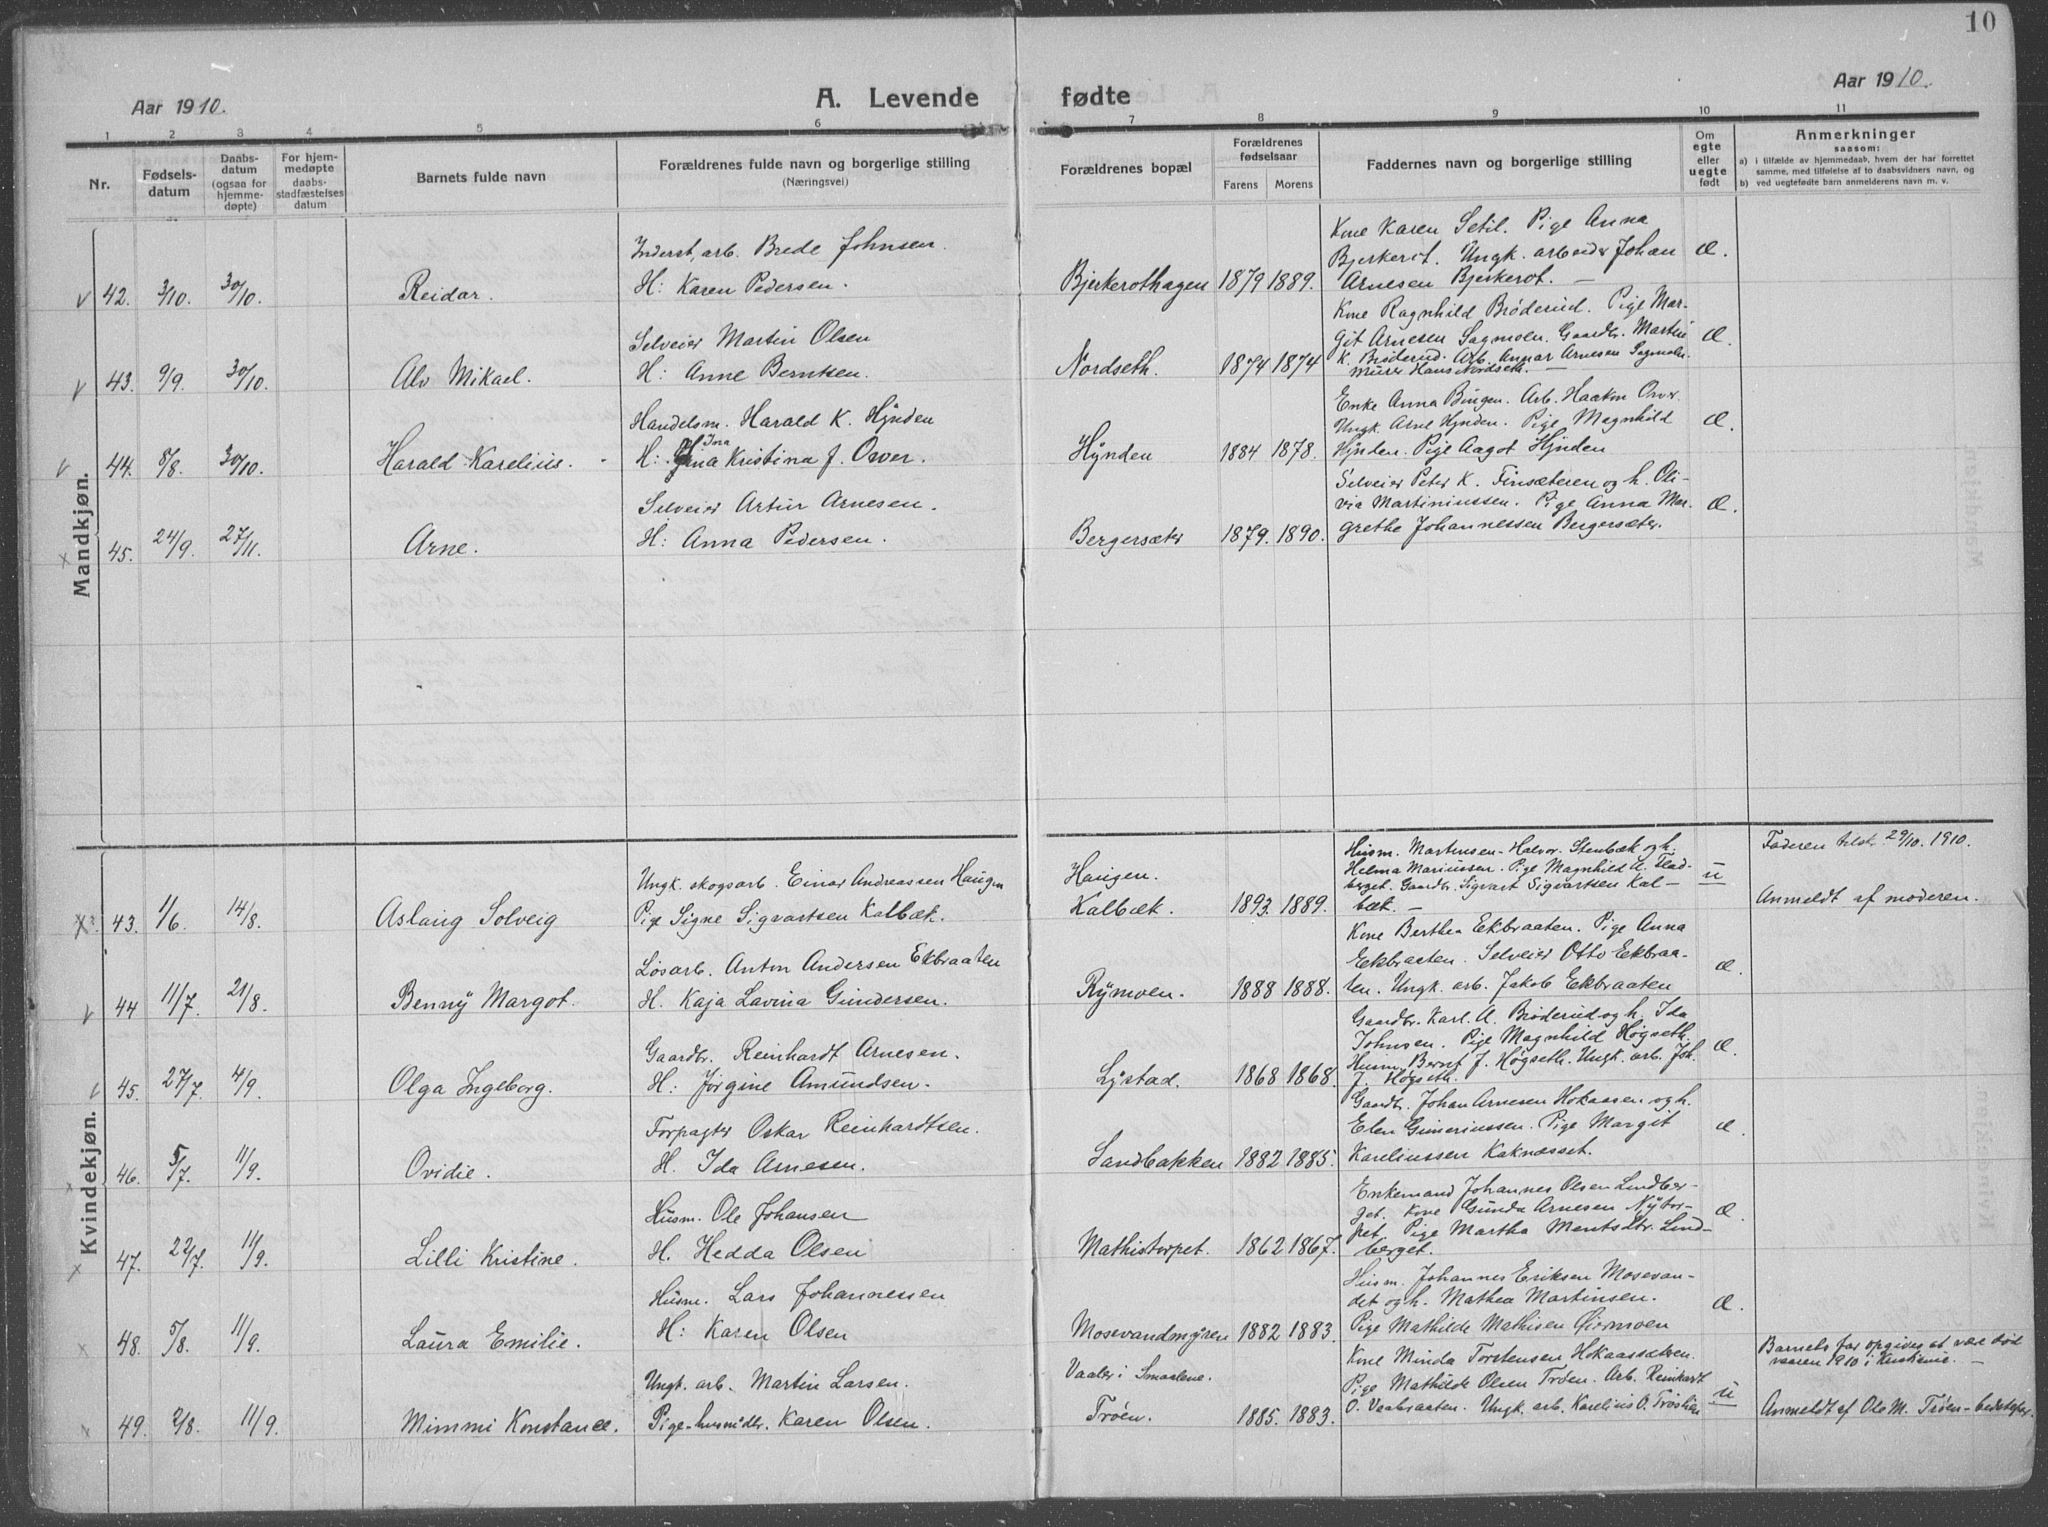 10
Aar 1910.
A. Levende fødte
Aar 1910.
1 2 3 4 5 6 7 8 9 10 11
Nr.
Fødsels-
datum
Daabs-
datum
(ogsaa for
hjemme-
døpte)
For hjem-
medøpte
daabs-
stadfæstelses
datum
Barnets fulde navn
Forældrenes fulde navn og borgerlige stilling
(Næringsvei)
Forældrenes bopæl
Forældrenes
fødselsaar
Farens Morens
Faddernes navn og borgerlige stilling
Om
egte
eller
uegte
født
Anmerkninger
saasom:
a) i tilfælde av hjemmedaab, hvem der har forrettet
samme, med tilføielse af to daabsvidners navn, og
b) ved uegtefødte barn anmelderens navn m. v.
Mandkjøn.
42. 3/10. 30/10. Reidar.
Inderst, arb. Brede Johnsen.
H: Karen Pedersen.
Bjerkerothagen 1879 1889.
Kone Karen Setil. Pige Anna
Bjerkerot. Ungk. arbeider Johan
Arnesen Bjerkerot. —
Æ.
43. 9/9. 30/10. Alv Mikael.
Selveier Martin Olsen
H: Anne Berntsen.
Nordseth. 1874 1874
Kone Ragnhild Brøderud. Pige Mar-
git Arnesen Sagmoen. Gaardbr. Martin
K. Brøderud. Arb. Annar Arnesen Sagmoen.
murer Hans Nordseth. —
Æ.
44. 8/8. 30/10. Harald Karelius.
Handelsm. Harald K. Hynden
H: Ina Kristina J. Osver.
Hynden 1884 1878.
Enke Anna Bingen. Arb. Haakon Osver.
Ungk. Arne Hynden. Pige Magnhild
Hynden. Pige Aagot Hynden
Æ.
45. 24/9. 27/11. Arne.
Selveier Artur Arnesen.
H: Anna Pedersen.
Bergersæter 1879. 1890.
Selveier Peter K. Finsæteren og h. Oli-
via Martiniussen. Pige Anna Mar-
grethe Johannessen Bergersæter.
Æ.
Kvindekjøn.
43. 1/6. 14/8. Aslaug Solveig
Ungk. skogsarb. Einar Andreassen Haugen
Pige Signe Sigvartsen Kalbæk.
Haugen.
Kalbæk. 1893. 1889.
Husm. Martinsen-Halvor. Stenbæk og h.
Helma Mariussen. Pige Magnhild A. Flad-
berget. Gaardbr. Sigvart Sigvartsen Kal-
bæk. —
u
Faderen tilst. 29/10. 1910.
Anmeldt af moderen.
44 11/7. 21/8. Benny Margot.
Løsarb. Anton Andersen Ekbraaten
H. Kaja Lavina Gundersen.
Rymoen. 1888 1888.
Kone Berthea Ekbraaten. Pige Anna
Ekbraaten. Selveier Otto Ekbraa-
ten. Ungk. arb. Jakob Ekbraaten
Æ.
45. 27/7. 4/9. Olga Ingeborg.
Gaardbr. Reinhardt Arnesen.
H: Jørgine Amundsen.
Lystad. 1868 1868.
Gaardbr. Karl. A. Brøderud og h. Ida
Johnsen. Pige Magnhild Høgseth.
Husm. Bernt J. Høgseth. Ungk. arb. Joh.
J. Høgseth.
Æ.
46. 5/7. 11/9. Ovidie.
Forpagter Oskar Reinhardtsen.
H. Ida Arnesen.
Sandbakken 1882 1885.
Gaardbr. Johan Arnesen Hokaasen og h.
Elen Guneriussen. Pige Margit
Kareliussen Kaknæsset.
Æ.
47. 22/7. 11/9. Lilli Kristine.
Husm. Ole Johansen
H. Hedda Olsen
Mathistorpet. 1862 1867.
Enkemand Johannes Olsen Lindber-
get. Kone Gunda Arnesen Nytor-
pet. Pige Martha Mantsdtr. Lind-
berget.
Æ.
48. 5/8. 11/9. Laura Emilie.
Husm. Lars Johannessen
H: Karen Olsen
Mosevandmyren 1882 1883.
Husm. Johannes Eriksen Mosevan-
det og h. Mathea Martinsen.
Pige Mathilde Mathisen Øiermoen
Æ.
49. 2/8. 11/9. Mimmi Konstance.
Ungk. arb. Martin Larsen.
Pige-husmdtr. Karen Olsen.
Vaaler i Smaalene.
Trøen. 1885. 1883.
Kone Minda Torstensen Hokaassætren.
Pige Mathilde Olsen Trøen. Arb. Reinhart
O. Vaabraaten. Ungk. arb. Karelius O. Trøslien
u
Barnets far opgives at være død
vaaren 1910 i Kristiania. —
Anmeldt af Ole M. Trøen-bedstefar.